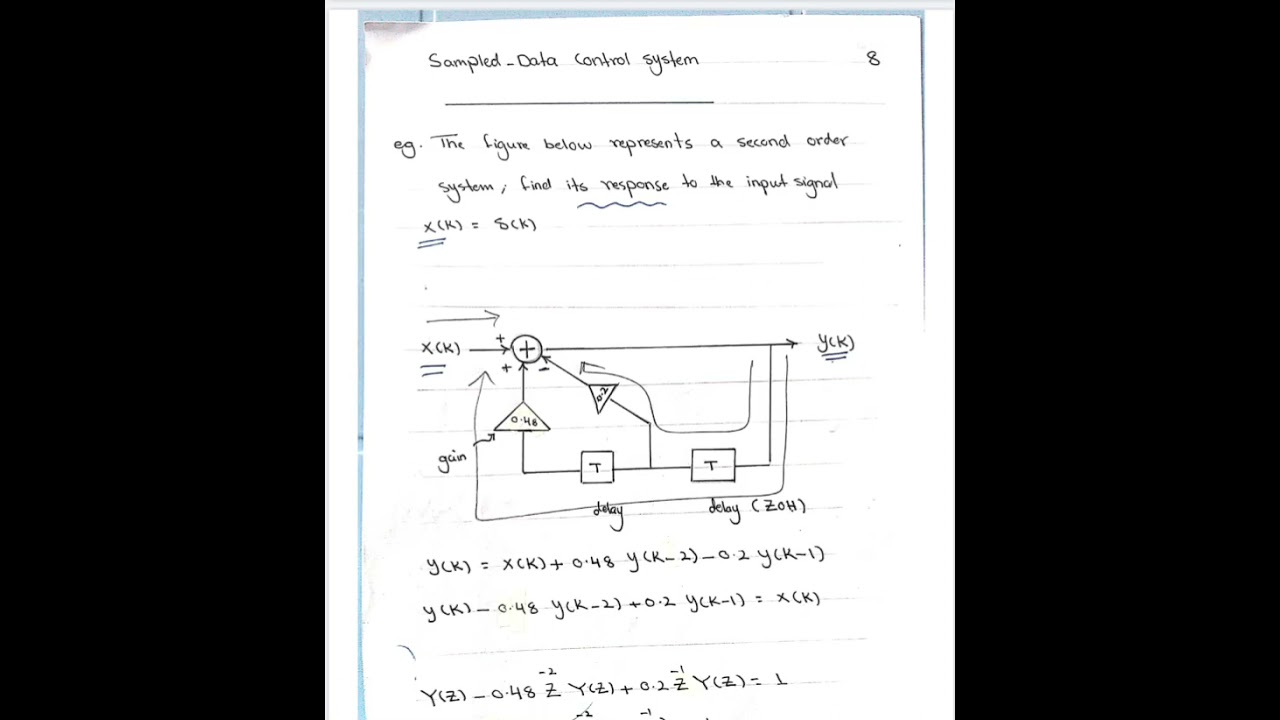 Sampled-Data Control system 8
eg. The figure below represents a second order
system, find its response to the input signal
X(K) = δ(K)
X(K) + + y(K)
+ -
0.2
0.48
gain
T T
delay delay (ZOH)
y(K) = X(K) + 0.48 y(K-2) - 0.2 y(K-1)
y(K) - 0.48 y(K-2) + 0.2 y(K-1) = X(K)
Y(Z) - 0.48 Z⁻² Y(Z) + 0.2 Z⁻¹ Y(Z) = 1
-2 -1